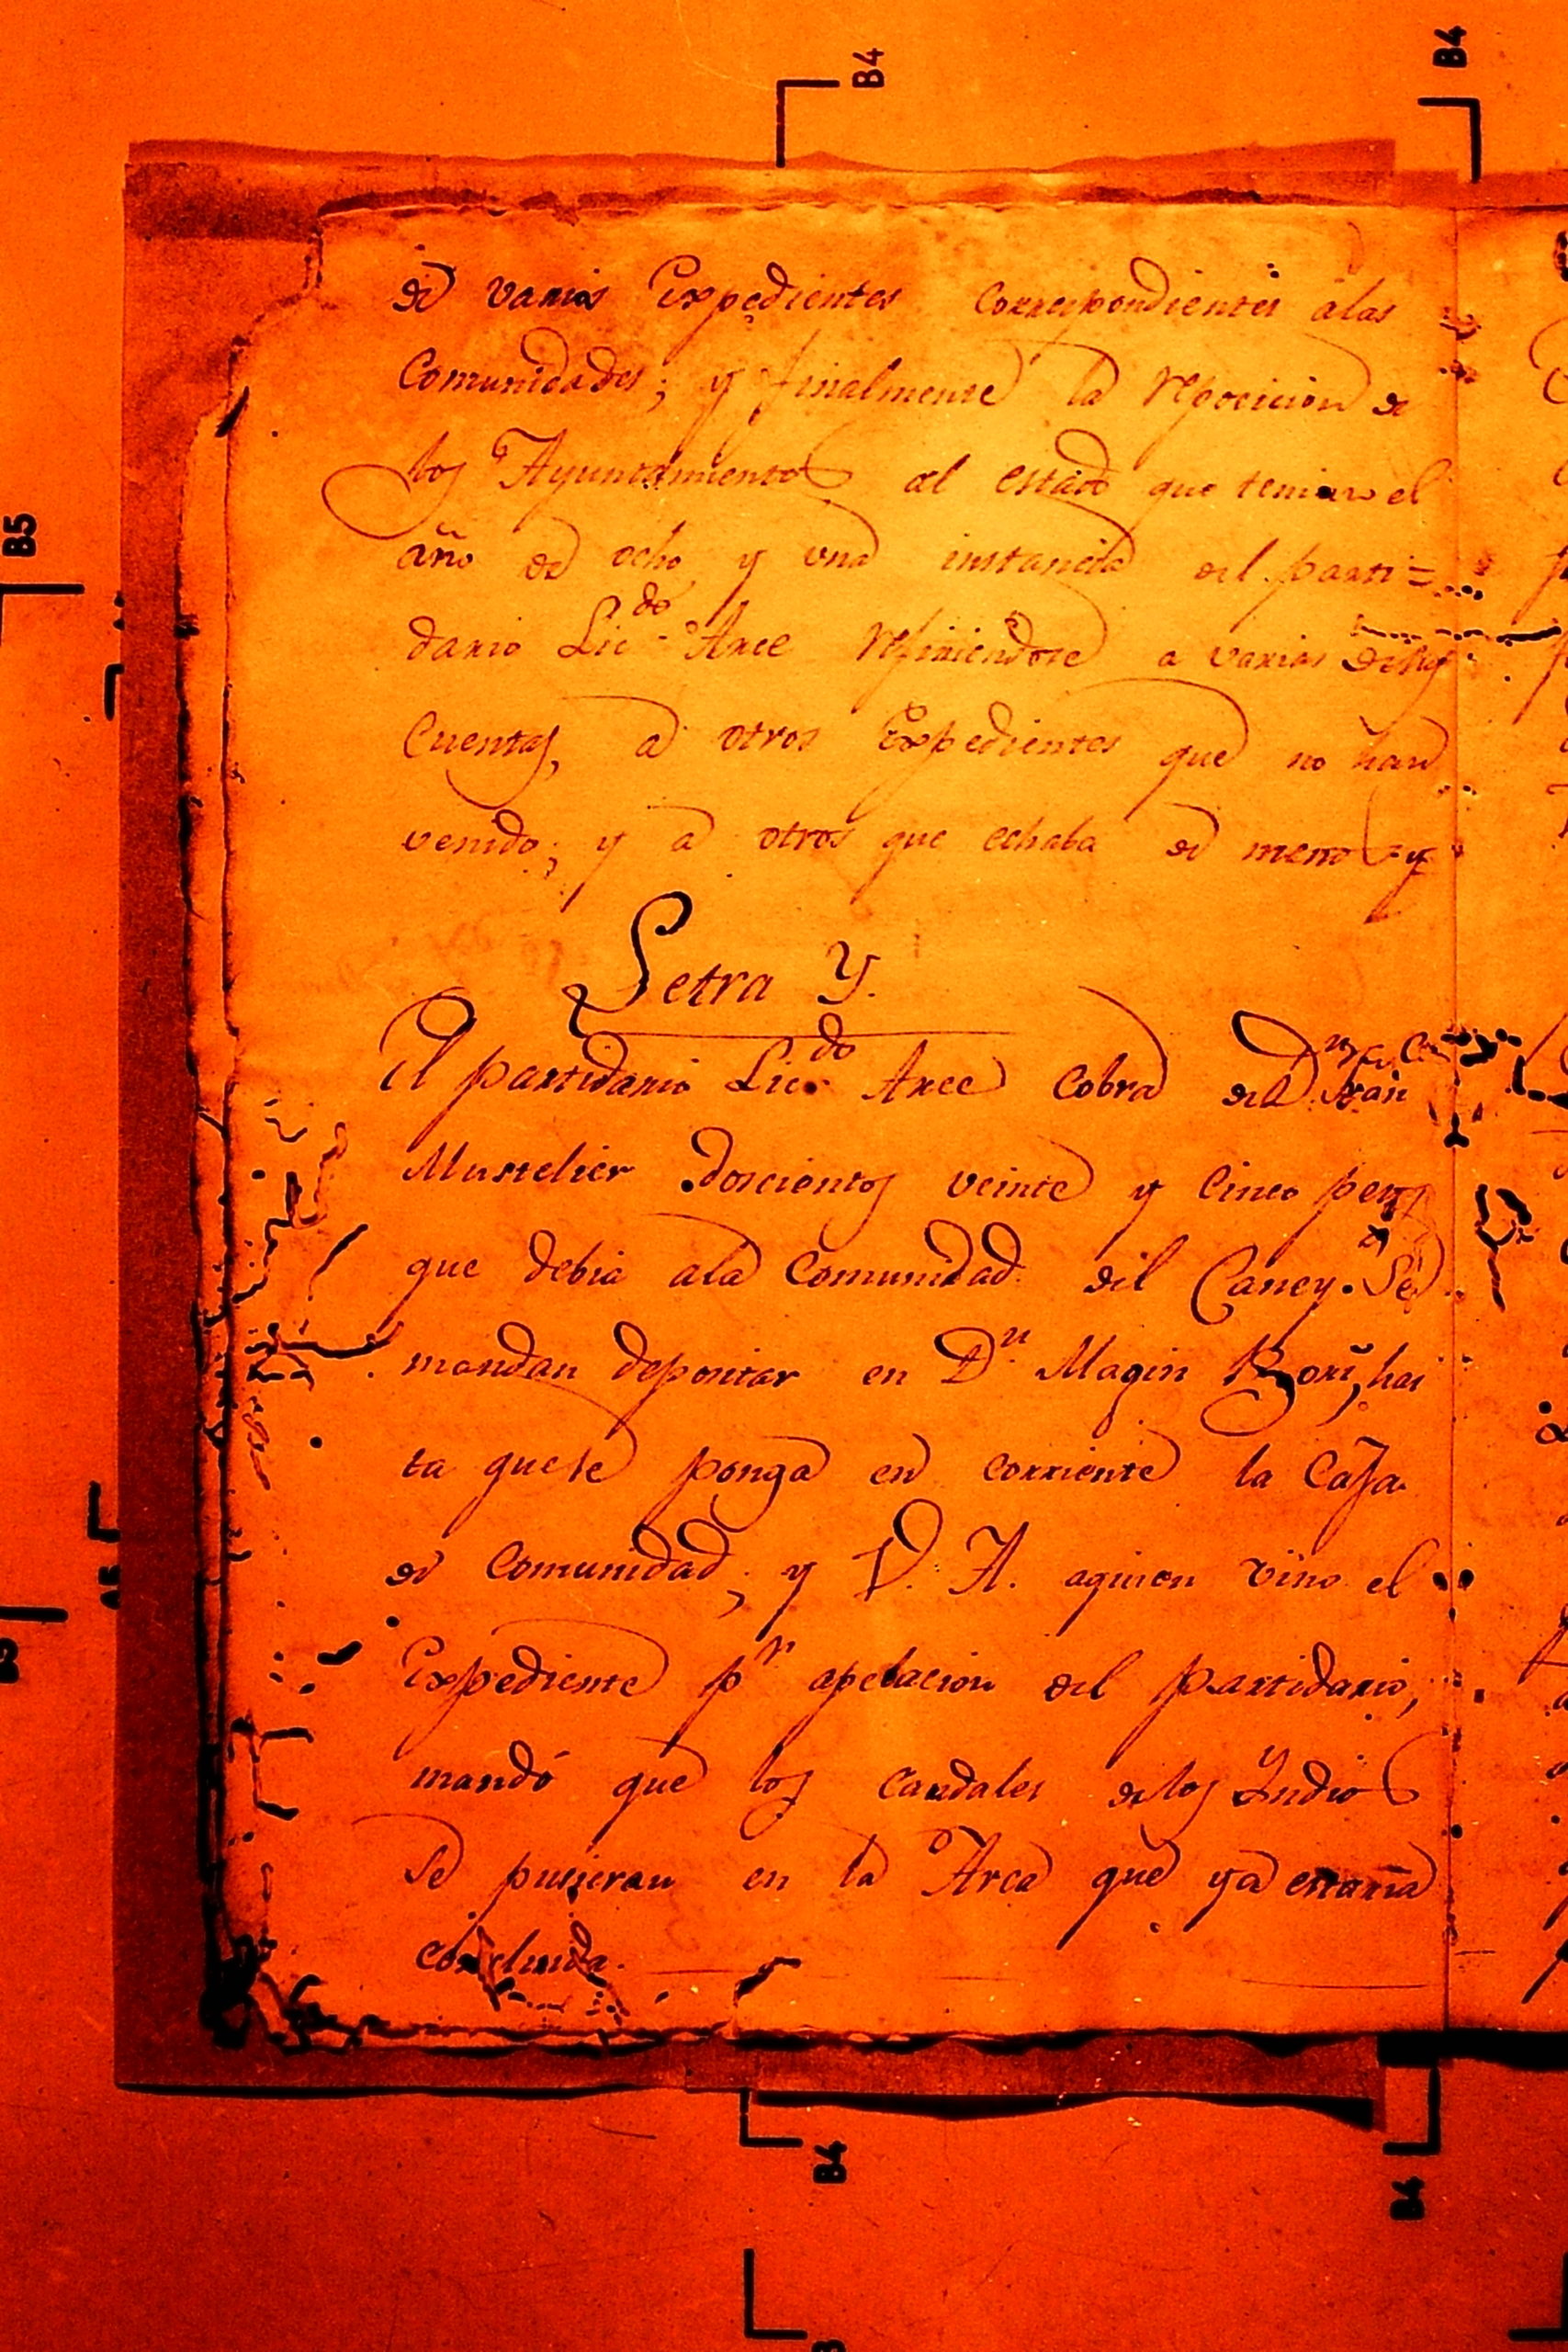 de varios Expedientes correspondientes álas
Comunidades; y finalmente la reposicion de
los Ayuntamientos al estado que tenian el
año de ocho y una instancia del parti=
dario Lic.do Arce refiriendose a varias de sus
Cuentas, a otros Expedientes que no han
venido; y a otros que echaba de menos y
Letra Y.
El partidario Lic.do Arce cobra del D.n Fran
Mustelier doscientos veinte y cinco pesos
que debia ala Comunidad del Caney. Se
mandan depositar en D.n Magin Bori, has
ta que se ponga en corriente la Caja
de Comunidad; y V. A. aquien vino el
Expediente p.r apelacion del partidario,
mandó que los caudales de los Indios
se pusieran en la Arca que ya estaria
concluida.
B4
B4
B5
B4
B4